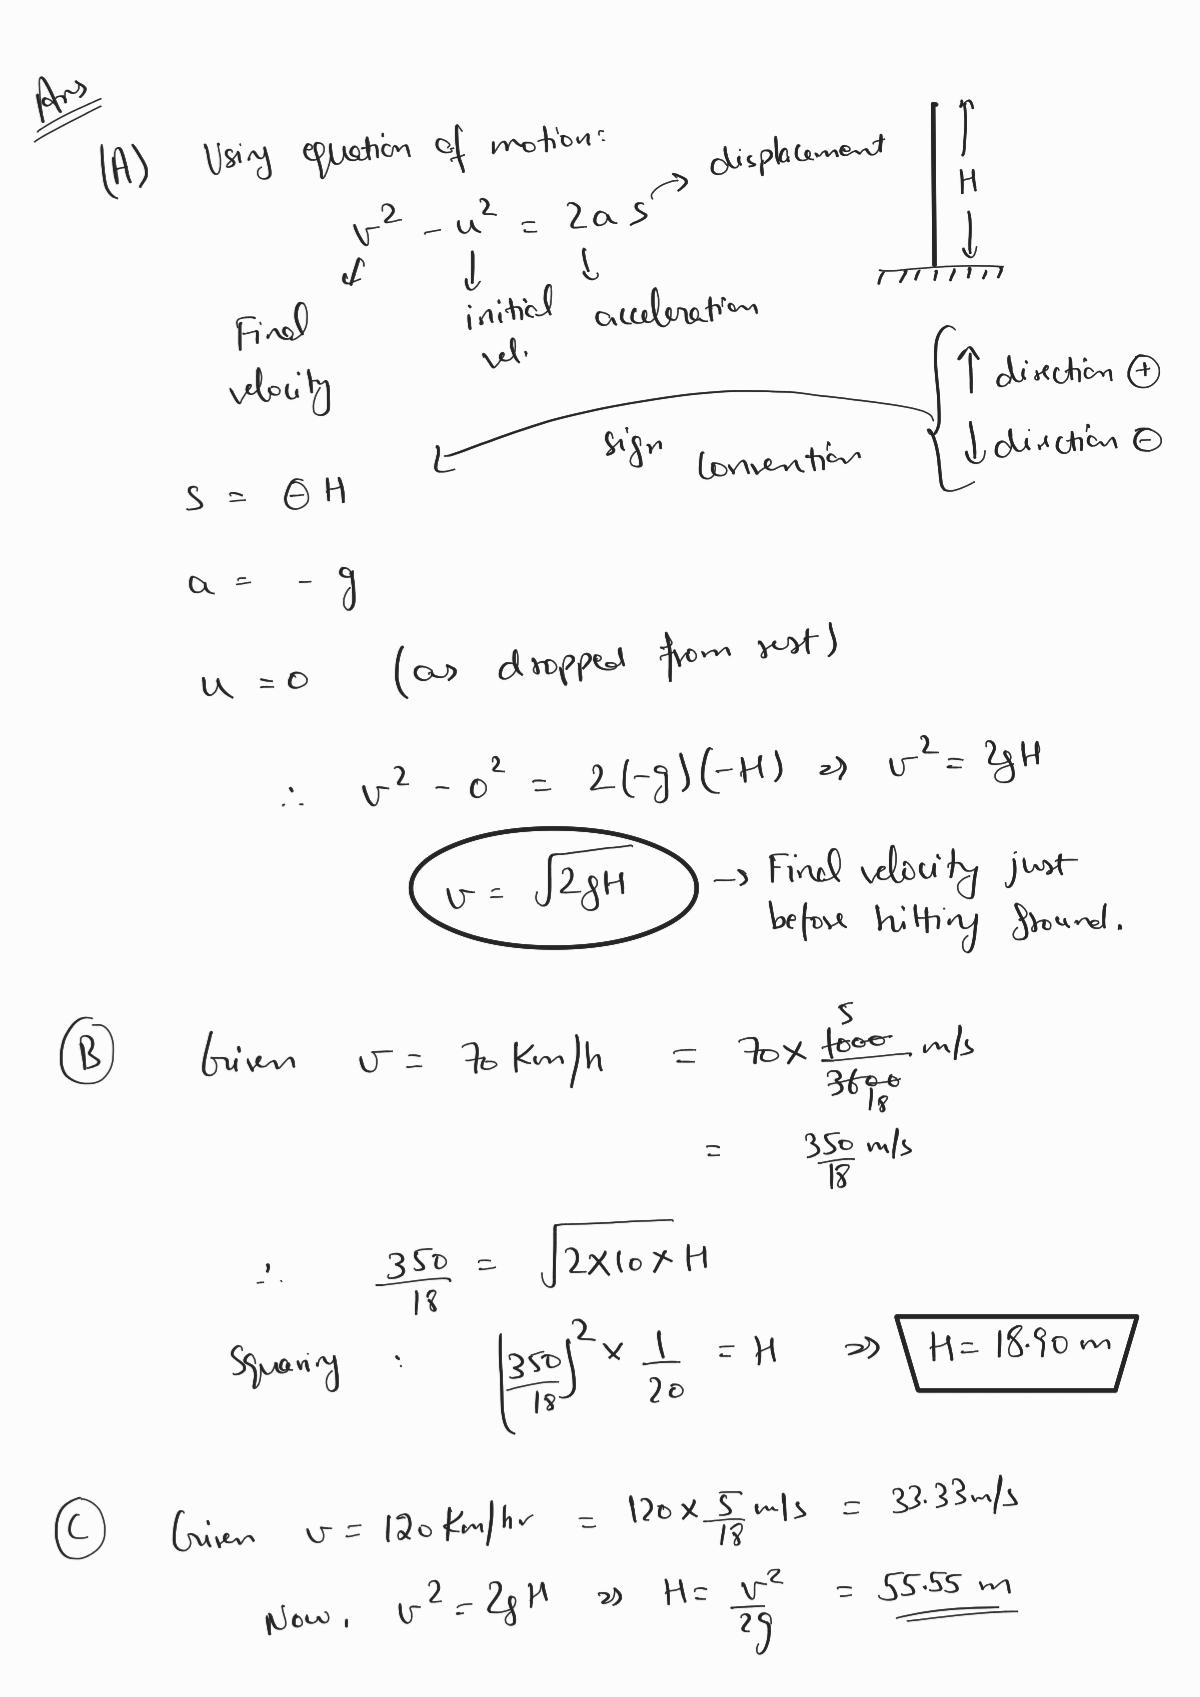 Ans
(A) Using equation of motion:
v² - u² = 2as → displacement
H
Final velocity
initial vel.
acceleration
↑ direction ⊕
↓ direction ⊖
sign convention
s = ⊖ H
a = - g
u = 0 (as dropped from rest)
∴ v² - 0² = 2(-g)(-H) ⇒ v² = 2gH
v = √2gH → Final velocity just
before hitting ground.
(B) Given v = 70 Km/h = 70 × 1000/3600 m/s
5
18
= 350/18 m/s
∴ 350/18 = √2×10×H
Squaring : (350/18)² × 1/20 = H ⇒ H = 18.90 m
(C) Given v = 120 Km/hr = 120 × 5/18 m/s = 33.33 m/s
Now, v² = 2gH ⇒ H = v²/2g = 55.55 m